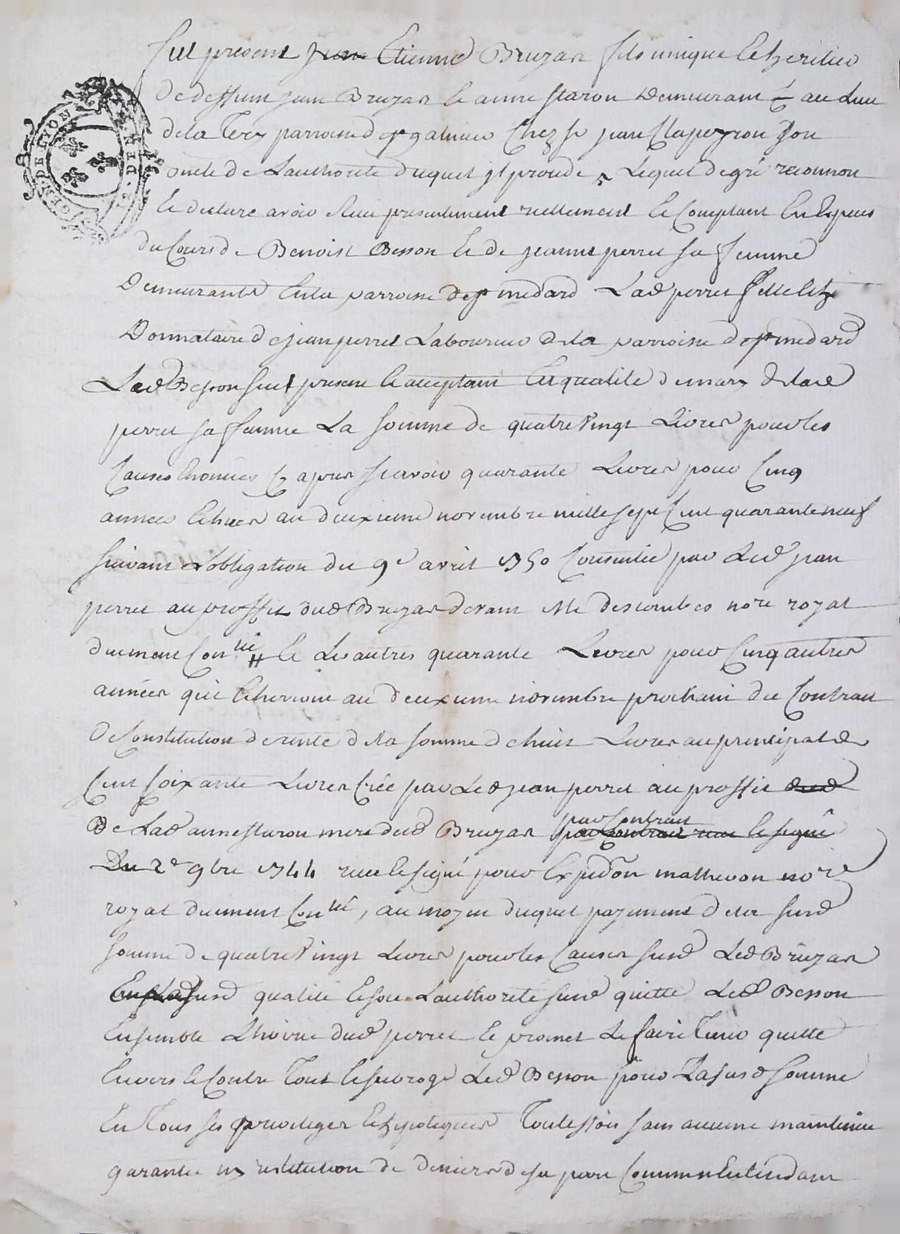 GEN. DE LYON
Fut present Jean Etienne Bruzas fils unique et heritier
de deffunt jean Bruzas et anne staron demeurant au lieu
de la Terr parroisse de st galmier chez sr jean Clapeyron son
oncle de L'authorité duquel il procede, Lequel de gré reconnoit
et declare avoir Receu presentement reellement et Comptant En Especes
du Cours de Benoist Besson et de jeanne perret sa femme
Demeurants En la parroisse de st medard Lad perret fille et
Donnataire de jean perret Laboureur de la parroisse de st medard
Led Besson present et acceptant En qualité de mary de lad
perret sa femme La somme de quatre Vingt Livres pour les
Causes Enoncées Cy apres scavoir quarante Livres pour Cinq
années Echues au deuxieme novembre mille sept Cent quarante neuf
suivant L'obligation du 9e avril 1750 Consentie par Led jean
perret au proffit dud Bruzas devant Me descombes nore royal
duement Conllé et Les autres quarante Livres pour Cinq autres
années qui Echerront au deuxieme novembre prochain du Contrat
de Constitution de rente de la somme de huit Livres au principal de
Cent soixante Livres Créé par Led jean perret au proffit dud
de Lad anne staron mere dud Bruzas par Contrat par Contrat receu et signé
Du 2e 9bre 1744 receu et signé pour Expedon mathevon nore
royal duement Conllé, au moyen duquel payement de la susd
somme de quatre Vingt Livres pour les Causes susd Led Bruzas
susd qualité Et sous L'authorité susd quitte Led Besson
Ensemble L'hoirie dud perret et promet Le faire Tenir quitte
Envers et Contre Tout et subroge Led Besson pour La susd somme
En Tous ses privileges et hypoteques Toutesfois sans aucune maintenue
garantie ny restitution de deniers de sa part Comm Entendant